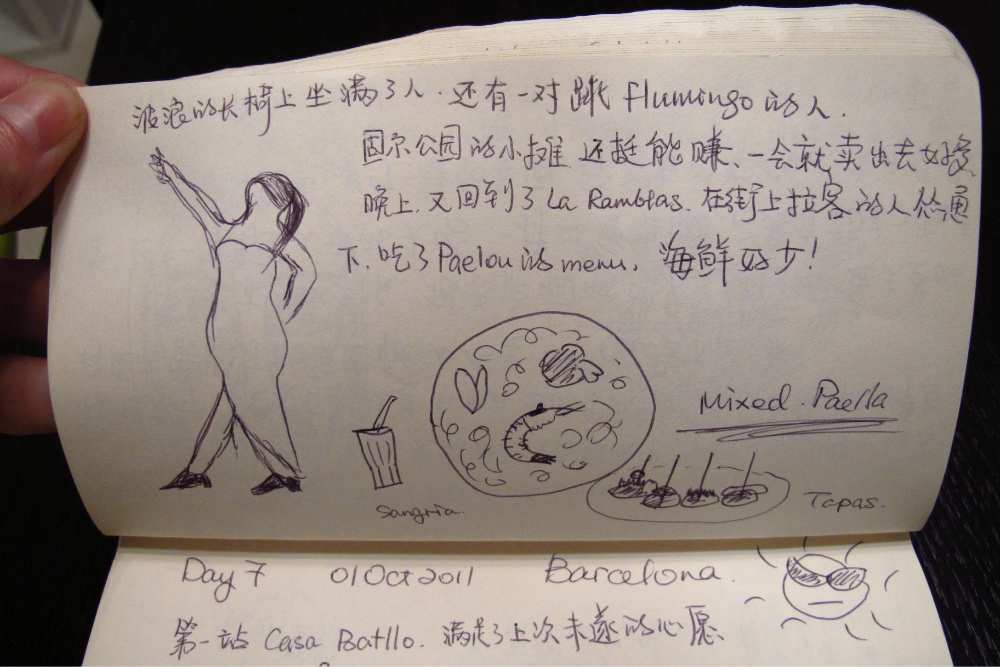 波浪的长椅上坐满了人.还有一对跳flumingo的人.
因尔公园的小摊还挺能赚、一会就卖出去好多、
晚上.又回到了La Ramblas.在街上拉客的人怂恿
下.吃了Paelou的menu, 海鲜好少!
Mixed.Paella
Sangria.
Tapas.
Day 7 01 Oct 2011 Barcelona.
第一站 Casa Batllo. 满足了上次未遂的心愿、